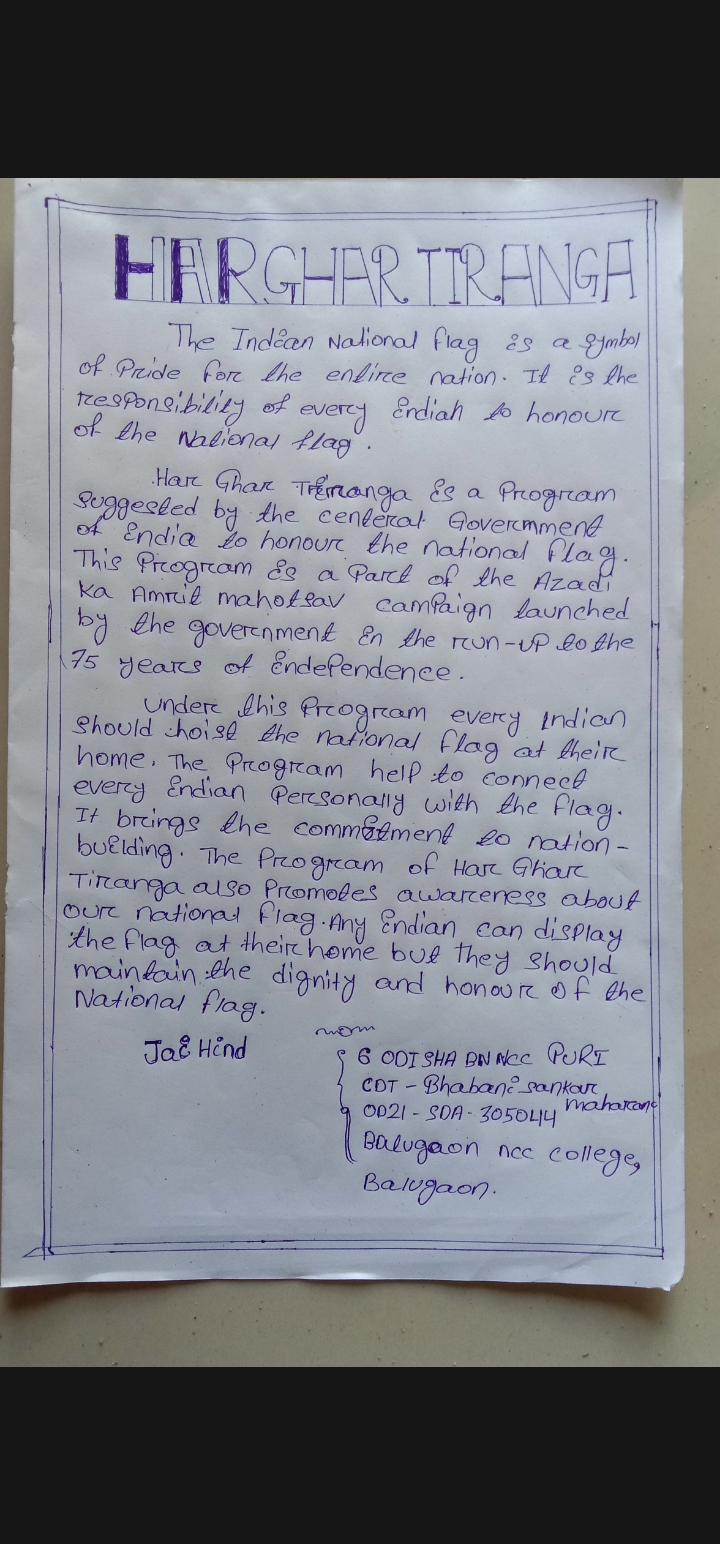 HAR GHAR TIRANGA
The Indian National flag is a symbol
of Pride for the entire nation. It is the
responsibility of every indian to honour
of the National flag.
Har Ghar Tiranga is a Program
suggested by the centeral Government
of india to honour the national flag.
This Program is a Part of the Azadi
Ka Amrit mahotsav campaign launched
by the government in the run-up to the
75 years of independence.
Under this Program every Indian
should hoist the national flag at their
home. The Program help to connect
every indian Personally with the flag.
It brings the commitment to nation-
building. The Program of Har Ghar
Tiranga also Promotes awareness about
our national flag. Any indian can display
the flag at their home but they should
maintain the dignity and honour of the
National flag.
Jai Hind
6 ODISHA BN NCC PURI
CDT - Bhabani sankar
maharana
OD21 - SDA - 305044
Balugaon ncc college,
Balugaon.